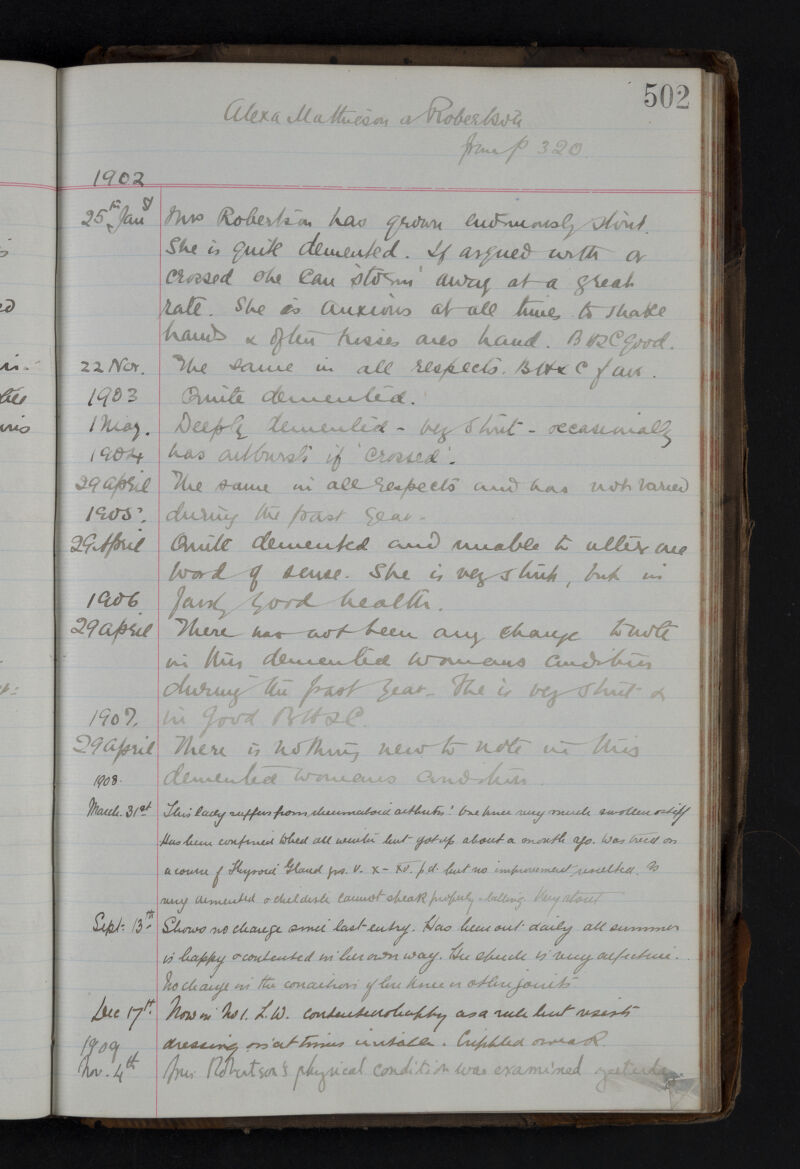 502
Alexa Mathieson or Robertson
from p 320
1902
25th Jany Mrs Robertson has grown enormously stout.
She is quite demented. If argued with or
crossed she can 'storm' away at a great
rate. She is anxious at all times to shake
hands & often kisses ones hand. B H & C good.
22 Nov. The same in all respects. B H & C fair.
1903 Quite demented.
1 May. Deeply demented - very stout - occasionally
1904 has outbursts if 'crossed'.
29 April The same in all respects and has not varied
1905. during the past year -
29 April Quite demented and unable to utter one
word of sense. She is very stout, but in
1906 fairly good health.
29 April There has not been any change to note
in this demented womans condition
during the past year - She is very stout &
1907. in good B H & C.
29 April There is nothing new to note in this
1908. demented womans condition
March. 31st This lady suffers from rheumatoid arthritis. One knee very much swollen & stiff
Has been confined to bed all winter but got up about a month ago. Was tried on
a course of Thyroid Gland grs. v. x - xv. p.d. but no improvement resulted. Is
very demented & childish cannot speak properly Very stout
Sept: 13th Shows no change since last entry. Has been out daily all summer
is happy & contented in her own way. Her speech is very defective.
No change in the condition of her knee or other joints
Dec 17th Now in No 1. L.W. contented & happy as a rule but resists
1909 dressing & is at times irritable. Crippled & weak
Nov. 4th Mrs Robertson's physical condition was examined yesterday.